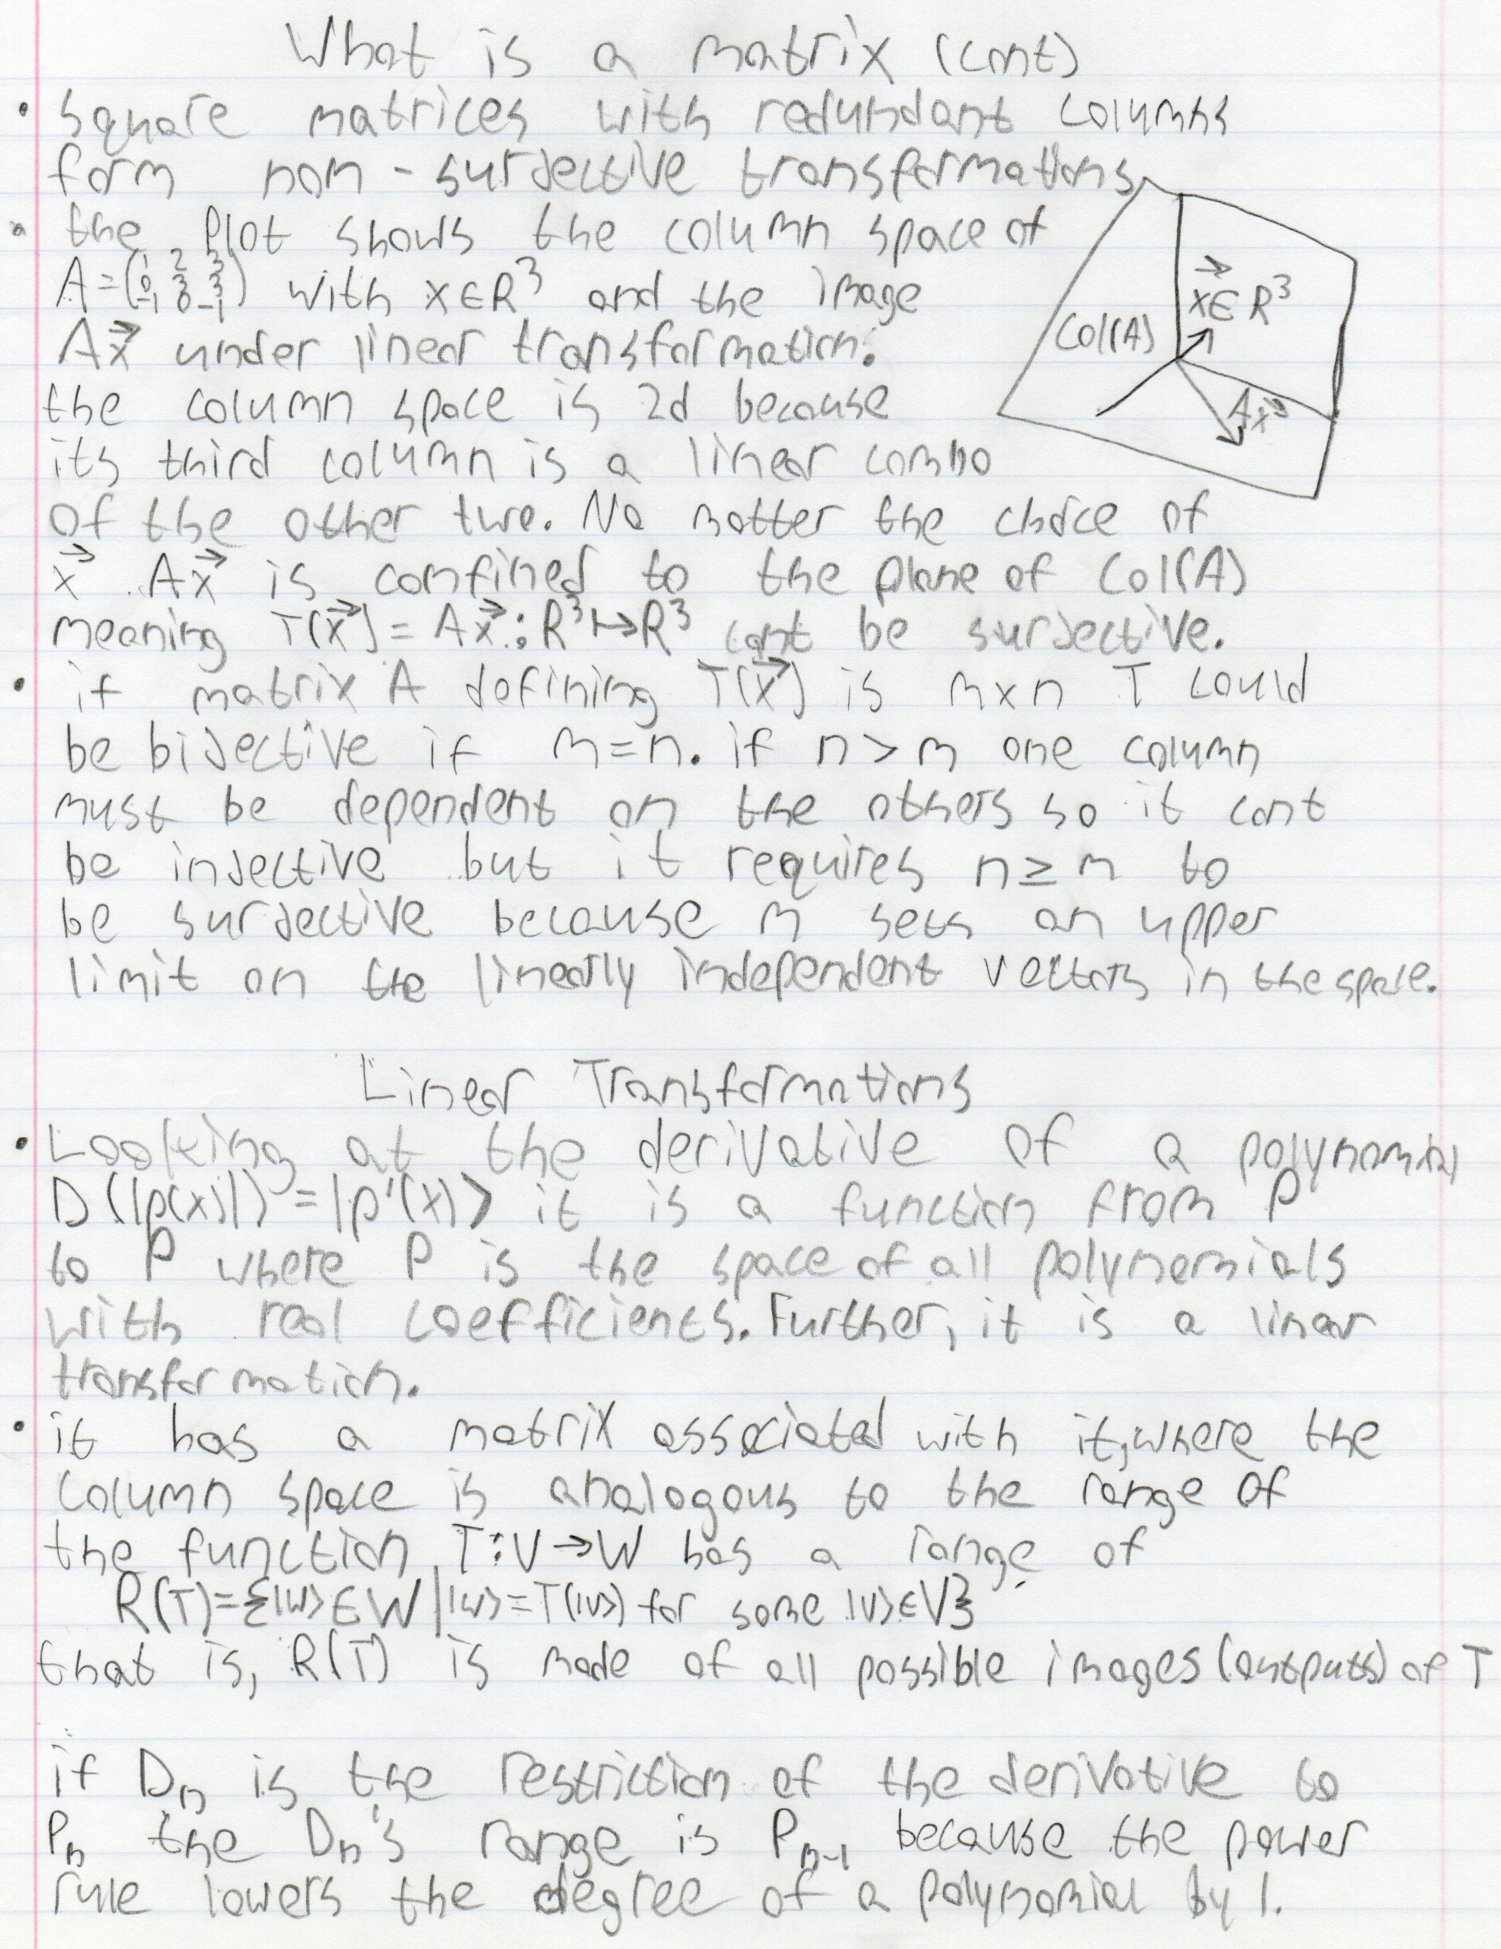 What is a matrix (cont)
• Square matrices with redundant columns
form non-surjective transformations
• the plot shows the column space of
A = (1 2 3; 0 3 3; -1 0 -1) with x∈R³ and the image
Ax⃗ under linear transformation.
the column space is 2d because
its third column is a linear combo
of the other two. No matter the choice of
x⃗ Ax⃗ is confined to the plane of Col(A)
meaning T(x⃗) = Ax⃗ : R³↦R³ cant be surjective.
Col(A)
x⃗∈R³
Ax⃗
• if matrix A defining T(x⃗) is m×n T could
be bijective if m=n. if n>m one column
must be dependent on the others so it cant
be injective but it requires n≥m to
be surjective because m sets an upper
limit on the linearly independent vectors in the space.
Linear Transformations
• Looking at the derivative of a polynomial
D(|p(x)|) = |p'(x)⟩ it is a function from P
to P where P is the space of all polynomials
with real coefficients. Further, it is a linear
transformation.
• it has a matrix associated with it, where the
column space is analogous to the range of
the function. T:V→W has a range of
R(T)={|w⟩∈W||w⟩=T(|v⟩) for some |v⟩∈V}
that is, R(T) is made of all possible images (outputs) of T
if Dₙ is the restriction of the derivative to
Pₙ the Dₙ's range is Pₙ₋₁ because the power
rule lowers the degree of a polynomial by 1.